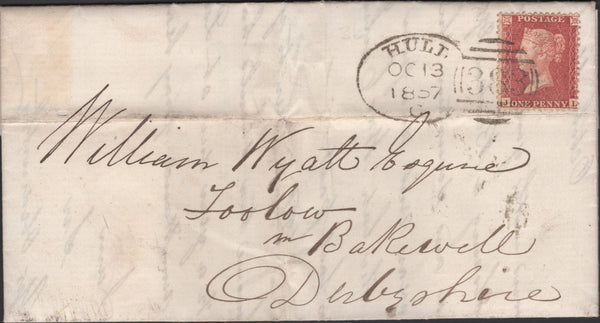 HULL
OC 13
1857
C
383
POSTAGE
J ONE PENNY L
William Wyatt Esquire
Foolow
nr Bakewell
Derbyshire